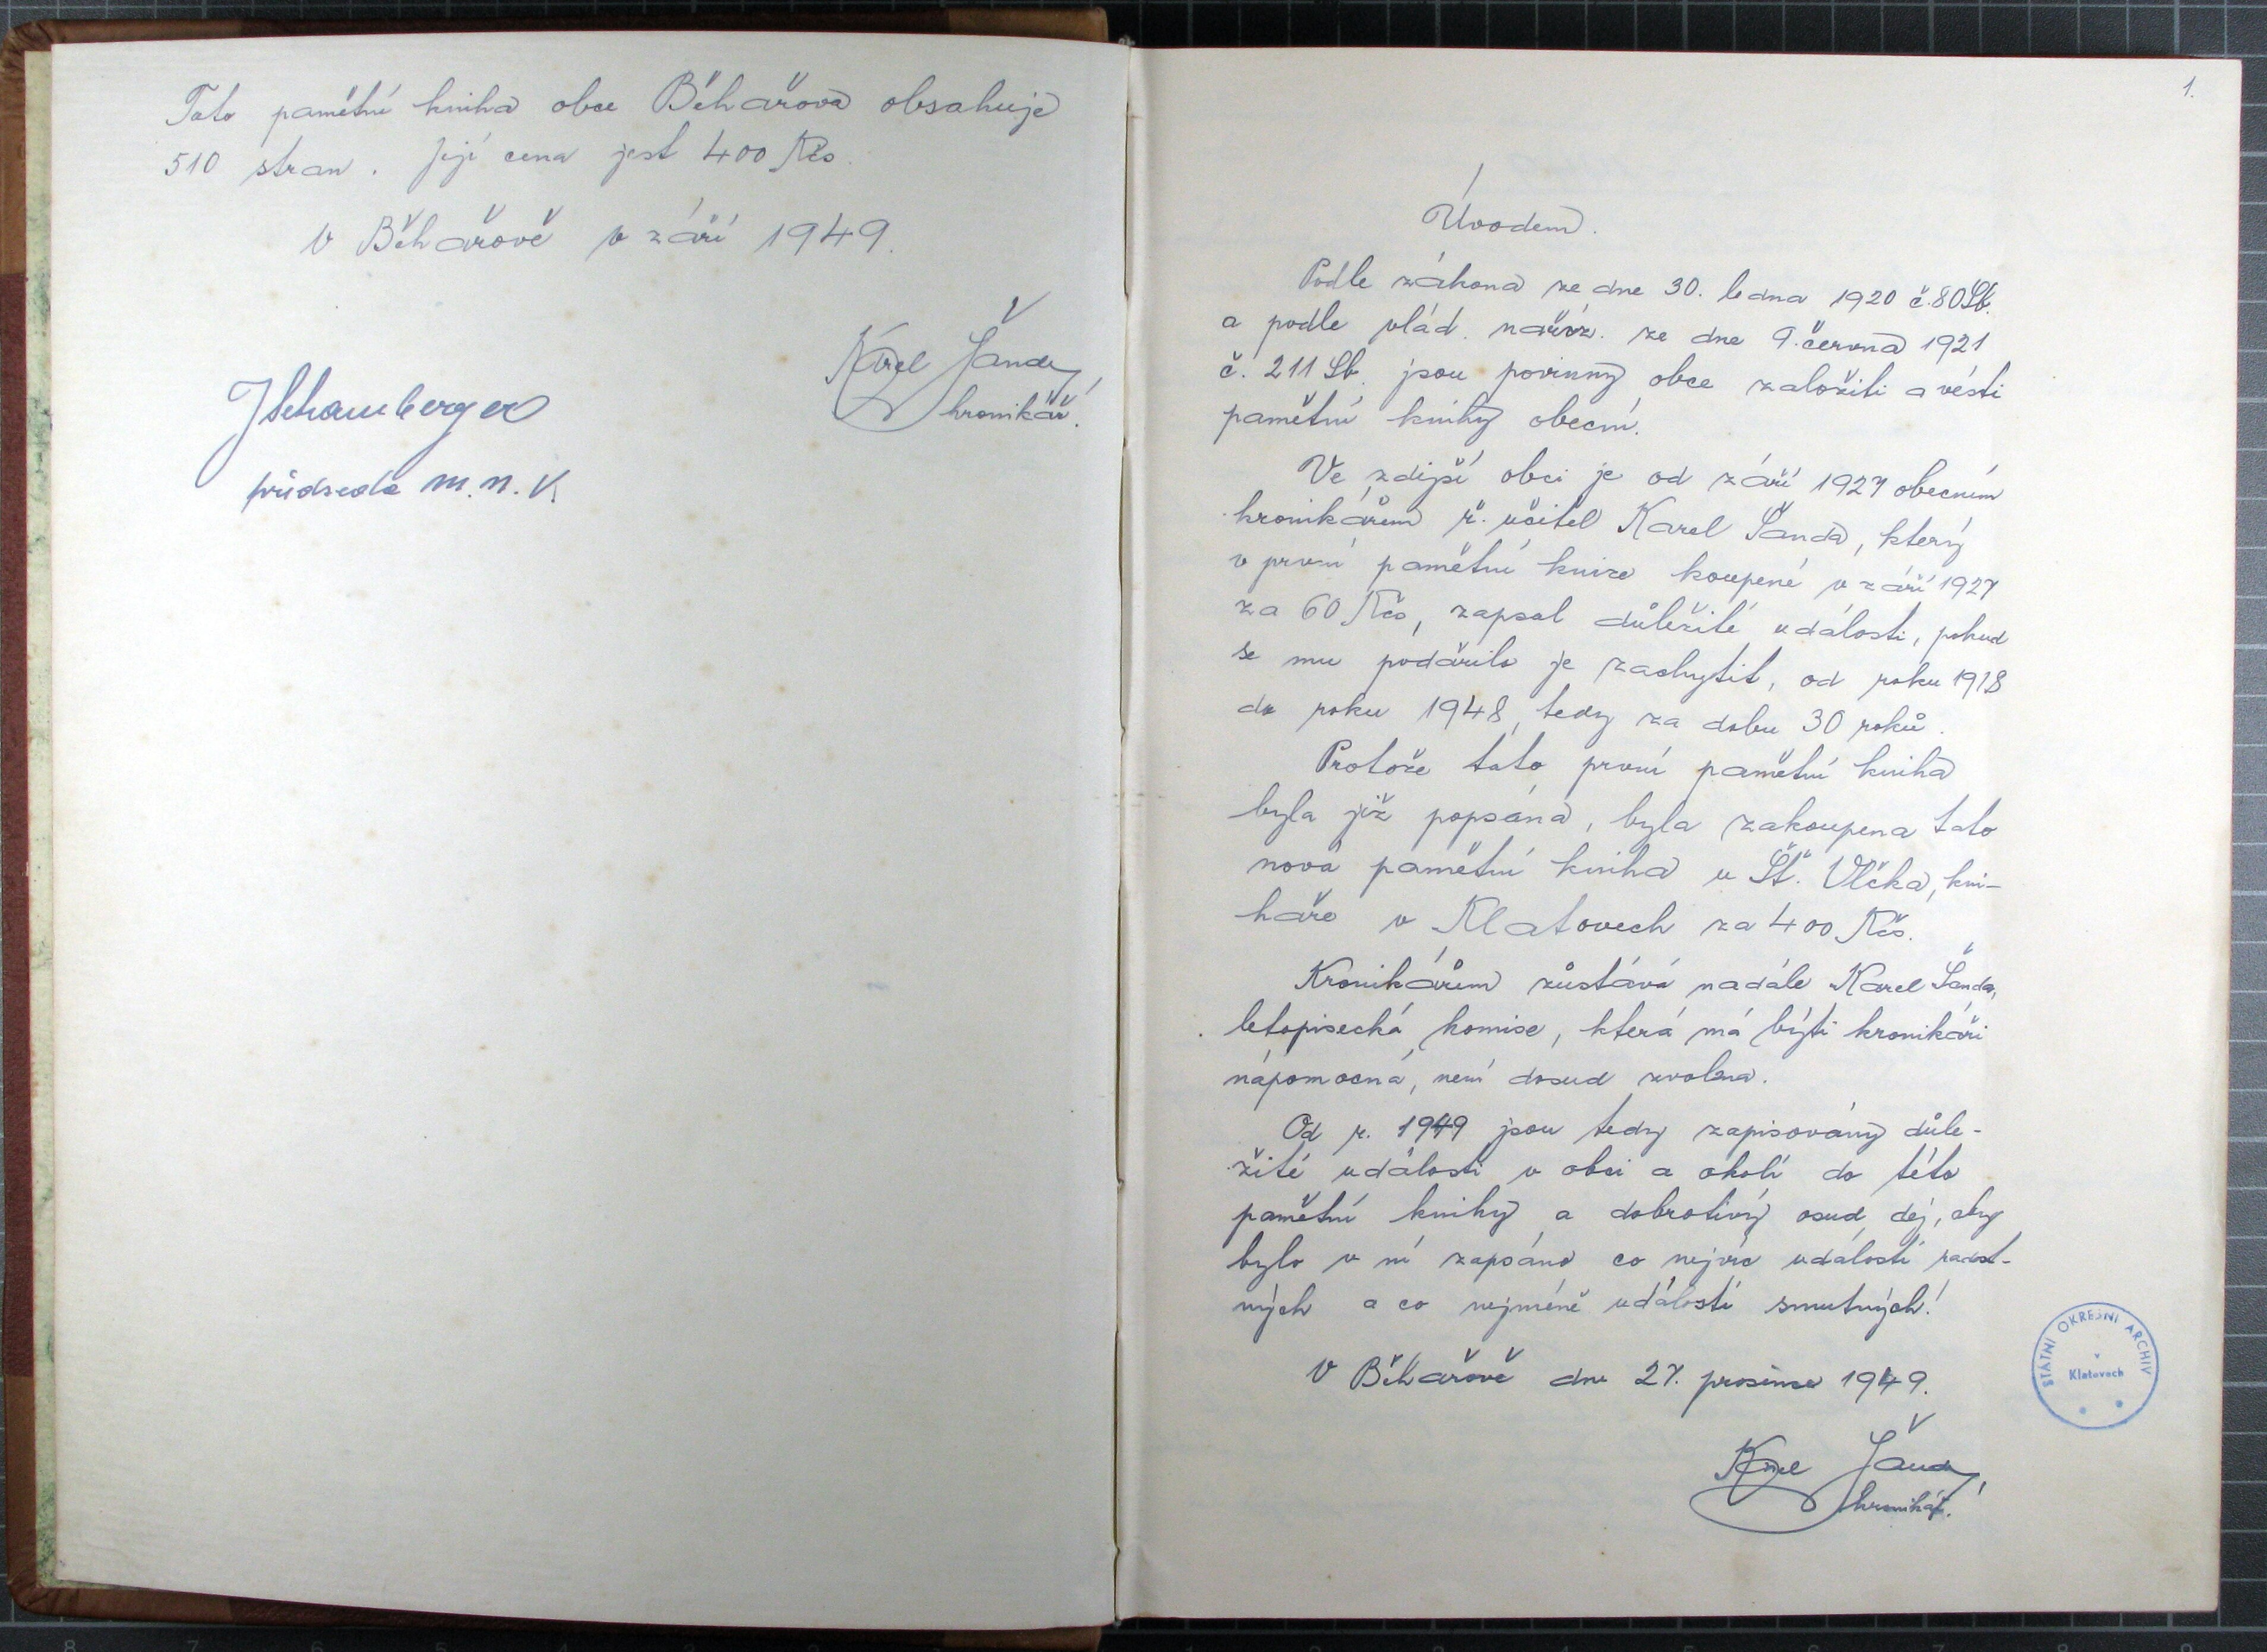 Tato pamětní kniha obce Běhařova obsahuje
510 stran. Její cena jest 400 Kčs.
V Běhařově v září 1949.
Karel Šanda
kronikář.
JSchamberger
předseda m.n.v.
1.
Úvodem.
Podle zákona ze dne 30. ledna 1920 č. 80 Sb.
a podle vlád. nařvz. ze dne 9. června 1921
č. 211 Sb. jsou povinny obce založiti a vésti
pamětní knihy obecní.
Ve zdejší obci je od září 1927 obecním
kronikářem ř. učitel Karel Šanda, který
v první pamětní knize koupené v září 1927
za 60 Kčs, zapsal důležité události, pokud
se mu podařilo je zachytit, od roku 1918
do roku 1948, tedy za dobu 30 roků.
Protože tato první pamětní kniha
byla již popsána, byla zakoupena tato
nová pamětní kniha u Št. Vlčka, kni-
haře v Klatovech za 400 Kčs.
Kronikářem zůstává nadále Karel Šanda,
letopisecká komise, která má býti kronikáři
nápomocná, není dosud zvolena.
Od r. 1949 jsou tedy zapisovány důle-
žité události v obci a okolí do této
pamětní knihy a dobrotivý osud dej, aby
bylo v ní zapsáno co nejvíc událostí radost-
ných a co nejméně událostí smutných!
V Běhařově dne 27. prosince 1949.
Karel Šanda,
kronikář.
STÁTNÍ OKRESNÍ ARCHIV
v
Klatovech